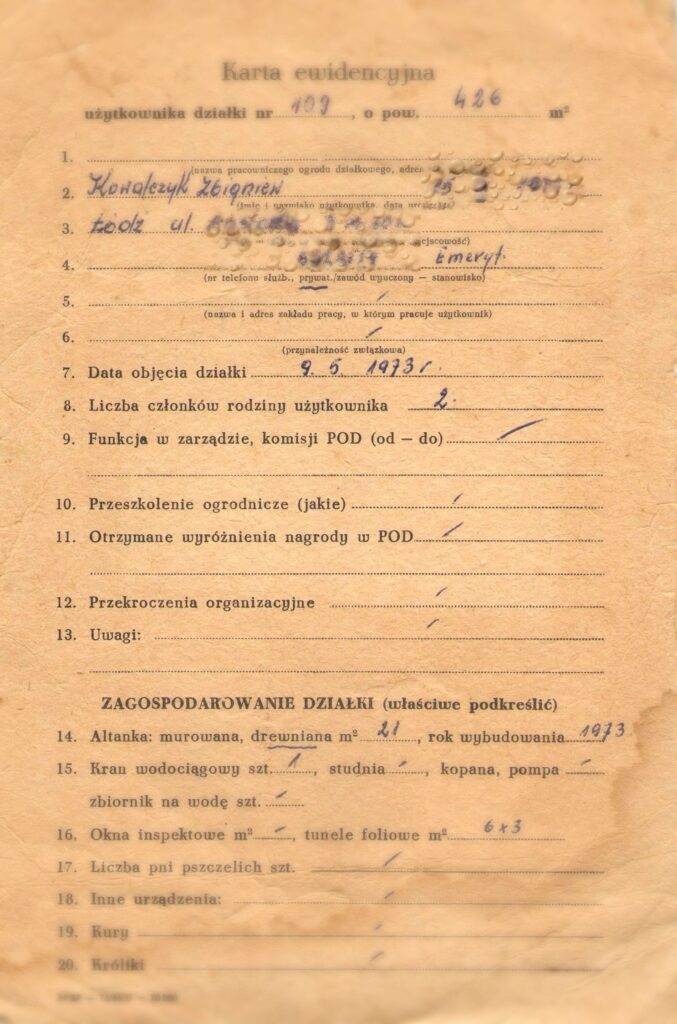 Karta ewidencyjna
użytkownika działki nr 109, o pow. 426 m²
1.
(nazwa pracowniczego ogrodu działkowego, adres
2. Kowalczyk Zbigniew
(imię i nazwisko użytkownika, data
3. Łódź ul.
miejscowość)
4. Emeryt.
(nr telefonu służb., prywat./zawód wyuczony – stanowisko)
5. /
(nazwa i adres zakładu pracy, w którym pracuje użytkownik)
6. /
(przynależność związkowa)
7. Data objęcia działki 9. 5. 1973 r.
8. Liczba członków rodziny użytkownika 2.
9. Funkcja w zarządzie, komisji POD (od – do) /
10. Przeszkolenie ogrodnicze (jakie) /
11. Otrzymane wyróżnienia nagrody w POD /
12. Przekroczenia organizacyjne /
13. Uwagi: /
ZAGOSPODAROWANIE DZIAŁKI (właściwe podkreślić)
14. Altanka: murowana, drewniana m² 21, rok wybudowania 1973
15. Kran wodociągowy szt. 1, studnia /, kopana, pompa /
zbiornik na wodę szt. /
16. Okna inspektowe m² /, tunele foliowe m² 6x3
17. Liczba pni pszczelich szt. /
18. Inne urządzenia: /
19. Kury /
20. Króliki /